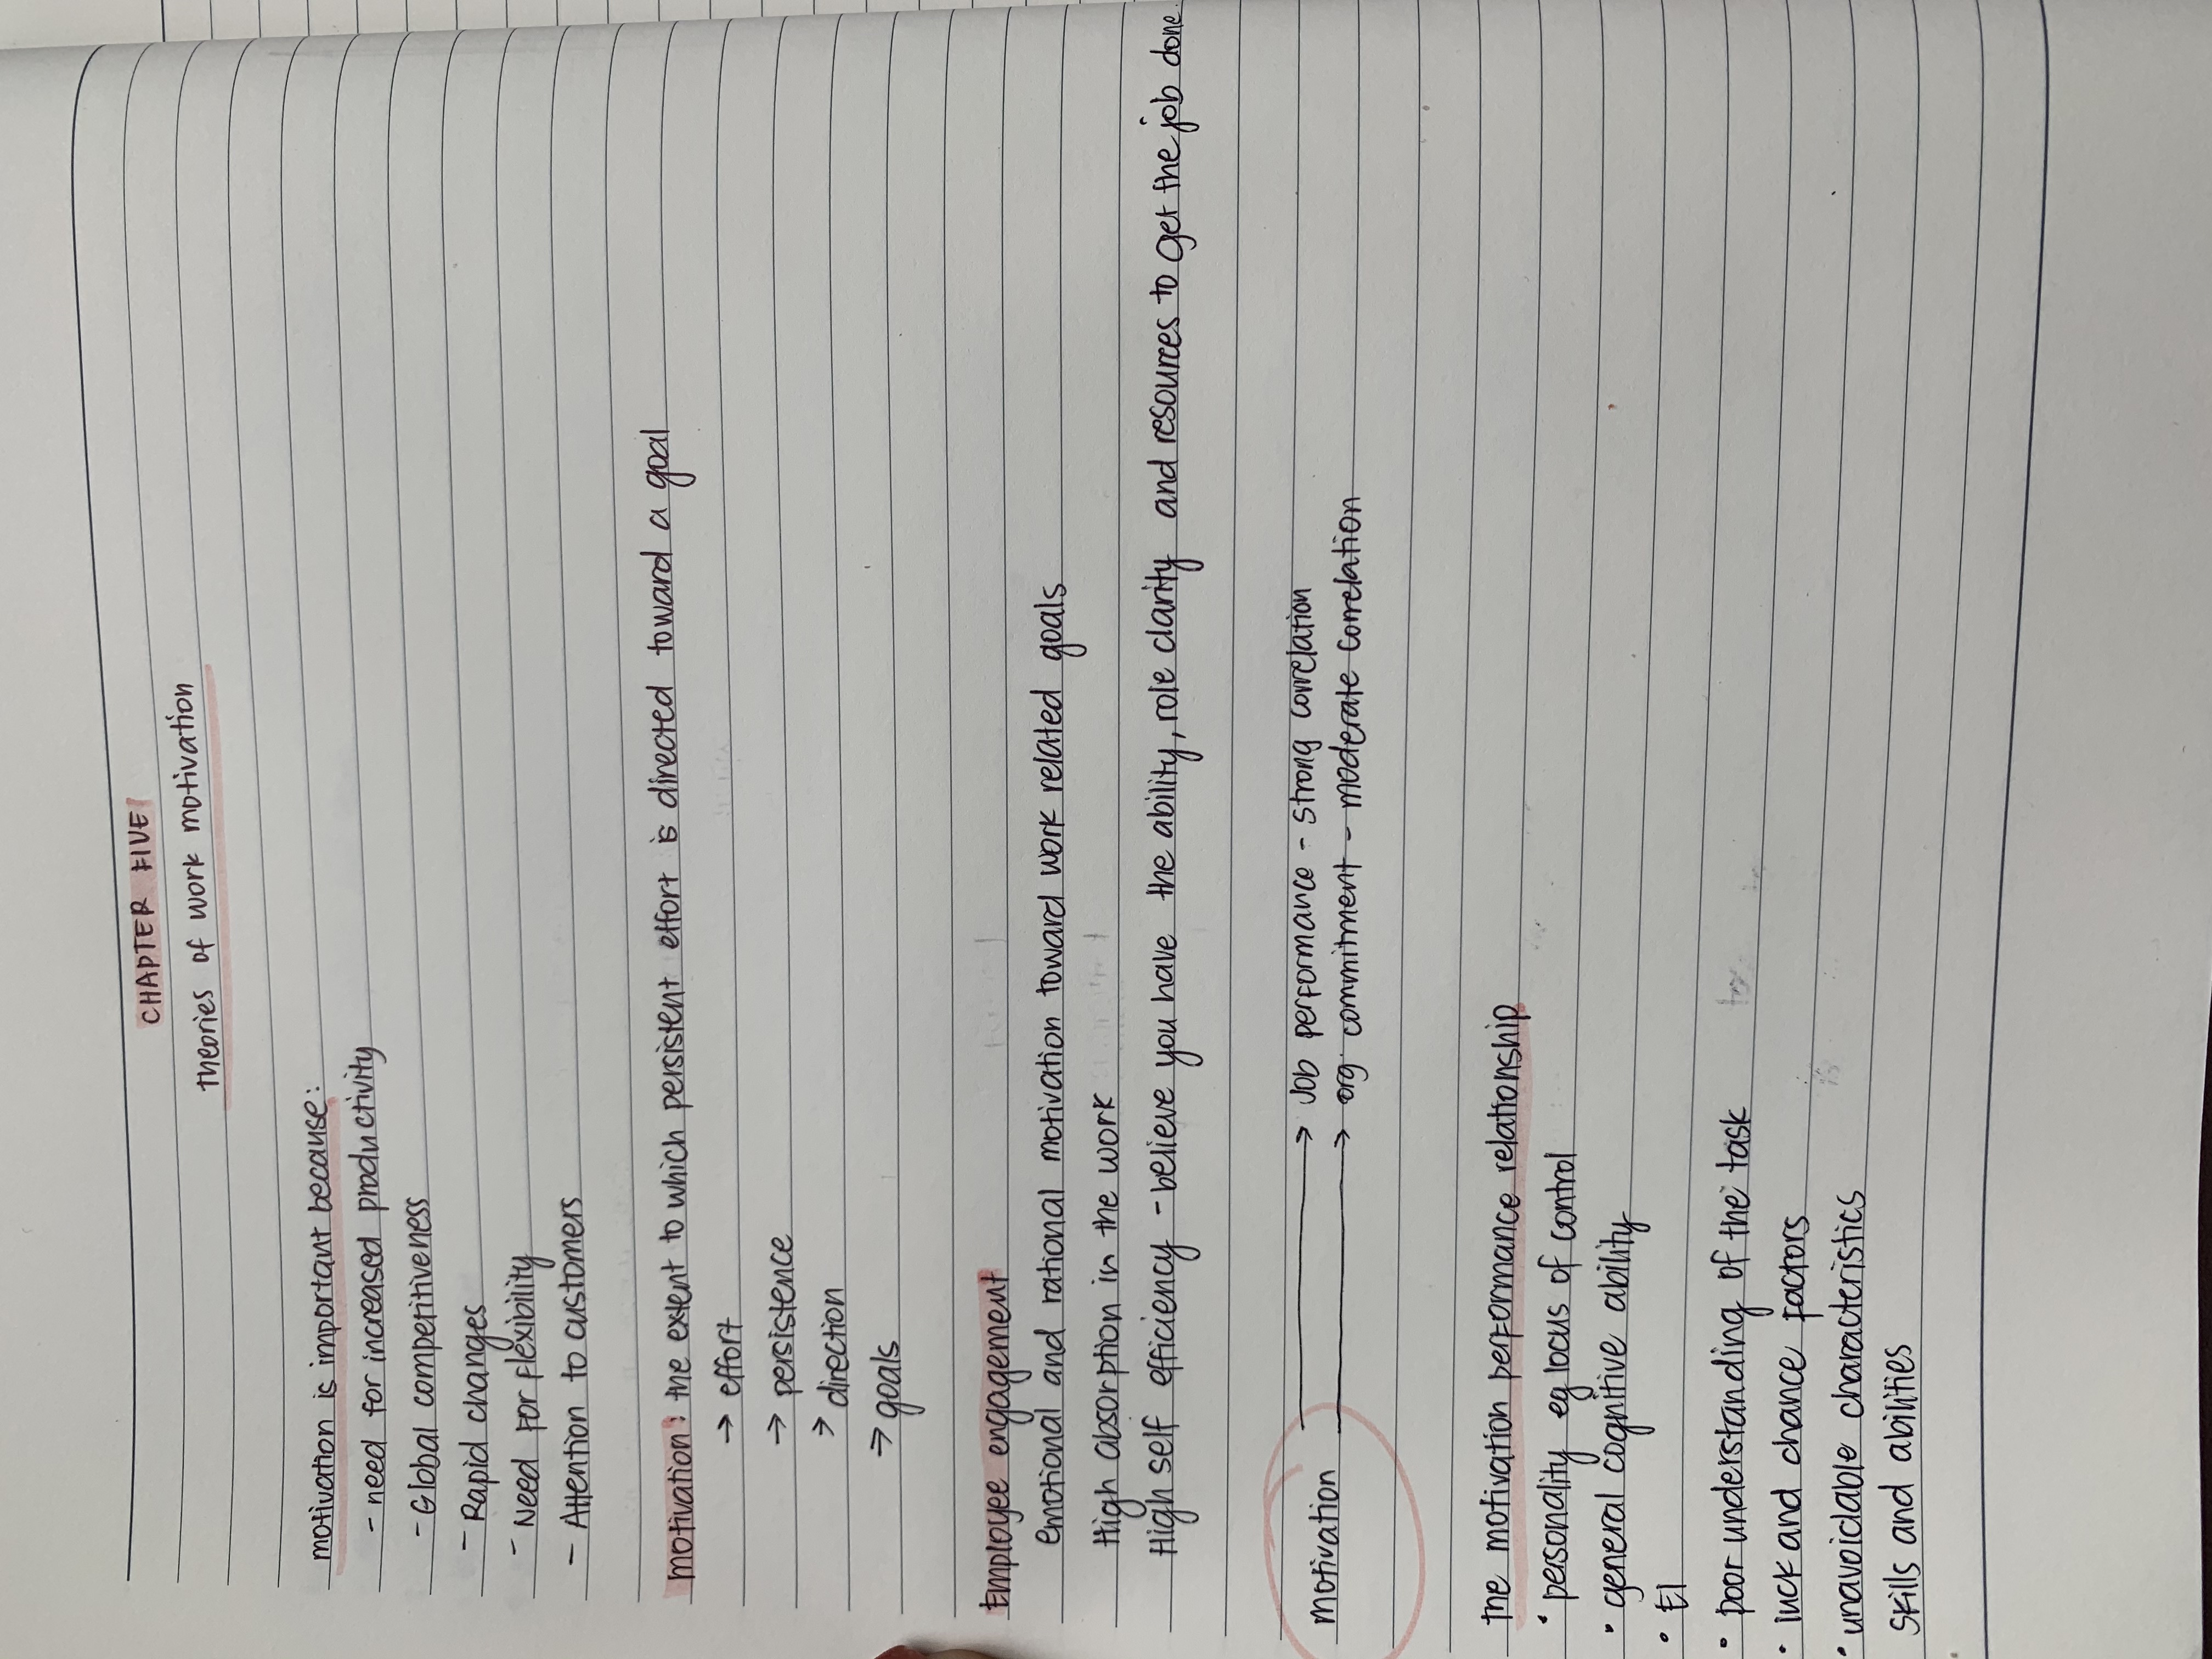 CHAPTER FIVE
theories of work motivation
motivation is important because:
- need for increased productivity
- Global competitiveness
- Rapid changes
- Need for flexibility
- Attention to customers
motivation: the extent to which persistent effort is directed toward a goal
→ effort
→ persistence
→ direction
→ goals
Employee engagement
Emotional and rational motivation toward work related goals
High absorption in the work
High self efficiency - believe you have the ability, role clarity and resources to get the job done.
motivation → Job performance - strong correlation
→ org. commitment - moderate correlation
the motivation performance relationship
• personality eg locus of control
• general cognitive ability
• EI
• poor understanding of the task
• luck and chance factors
• unavoidable characteristics
skills and abilities